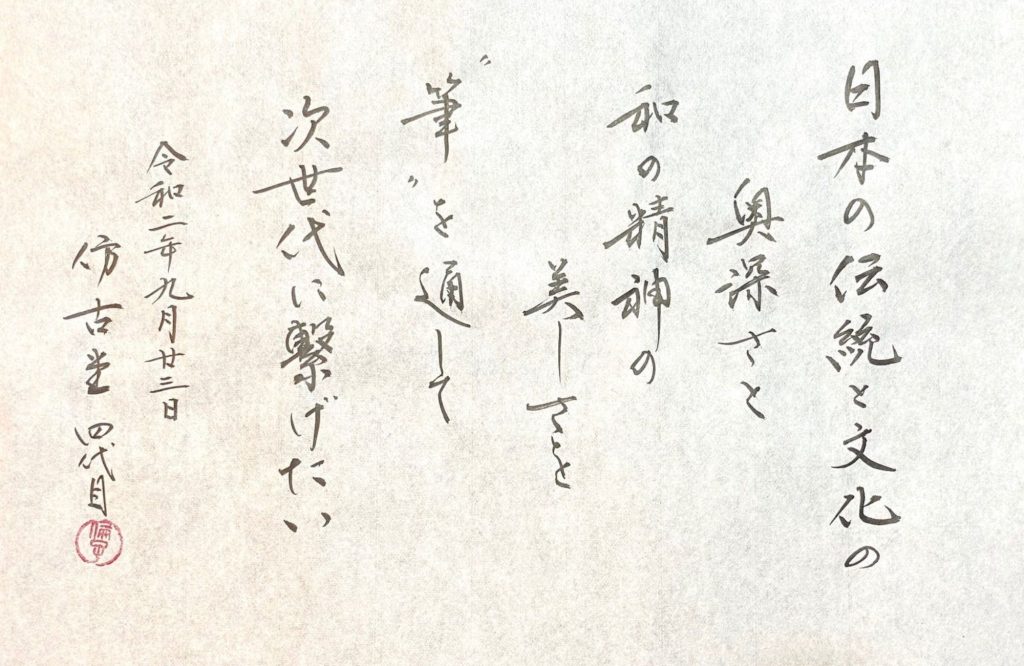 日本の伝統と文化の
奥深さと
和の精神の
美しさを
〝筆〟を通して
次世代に繋げたい
令和二年九月廿三日
仿古堂 四代目